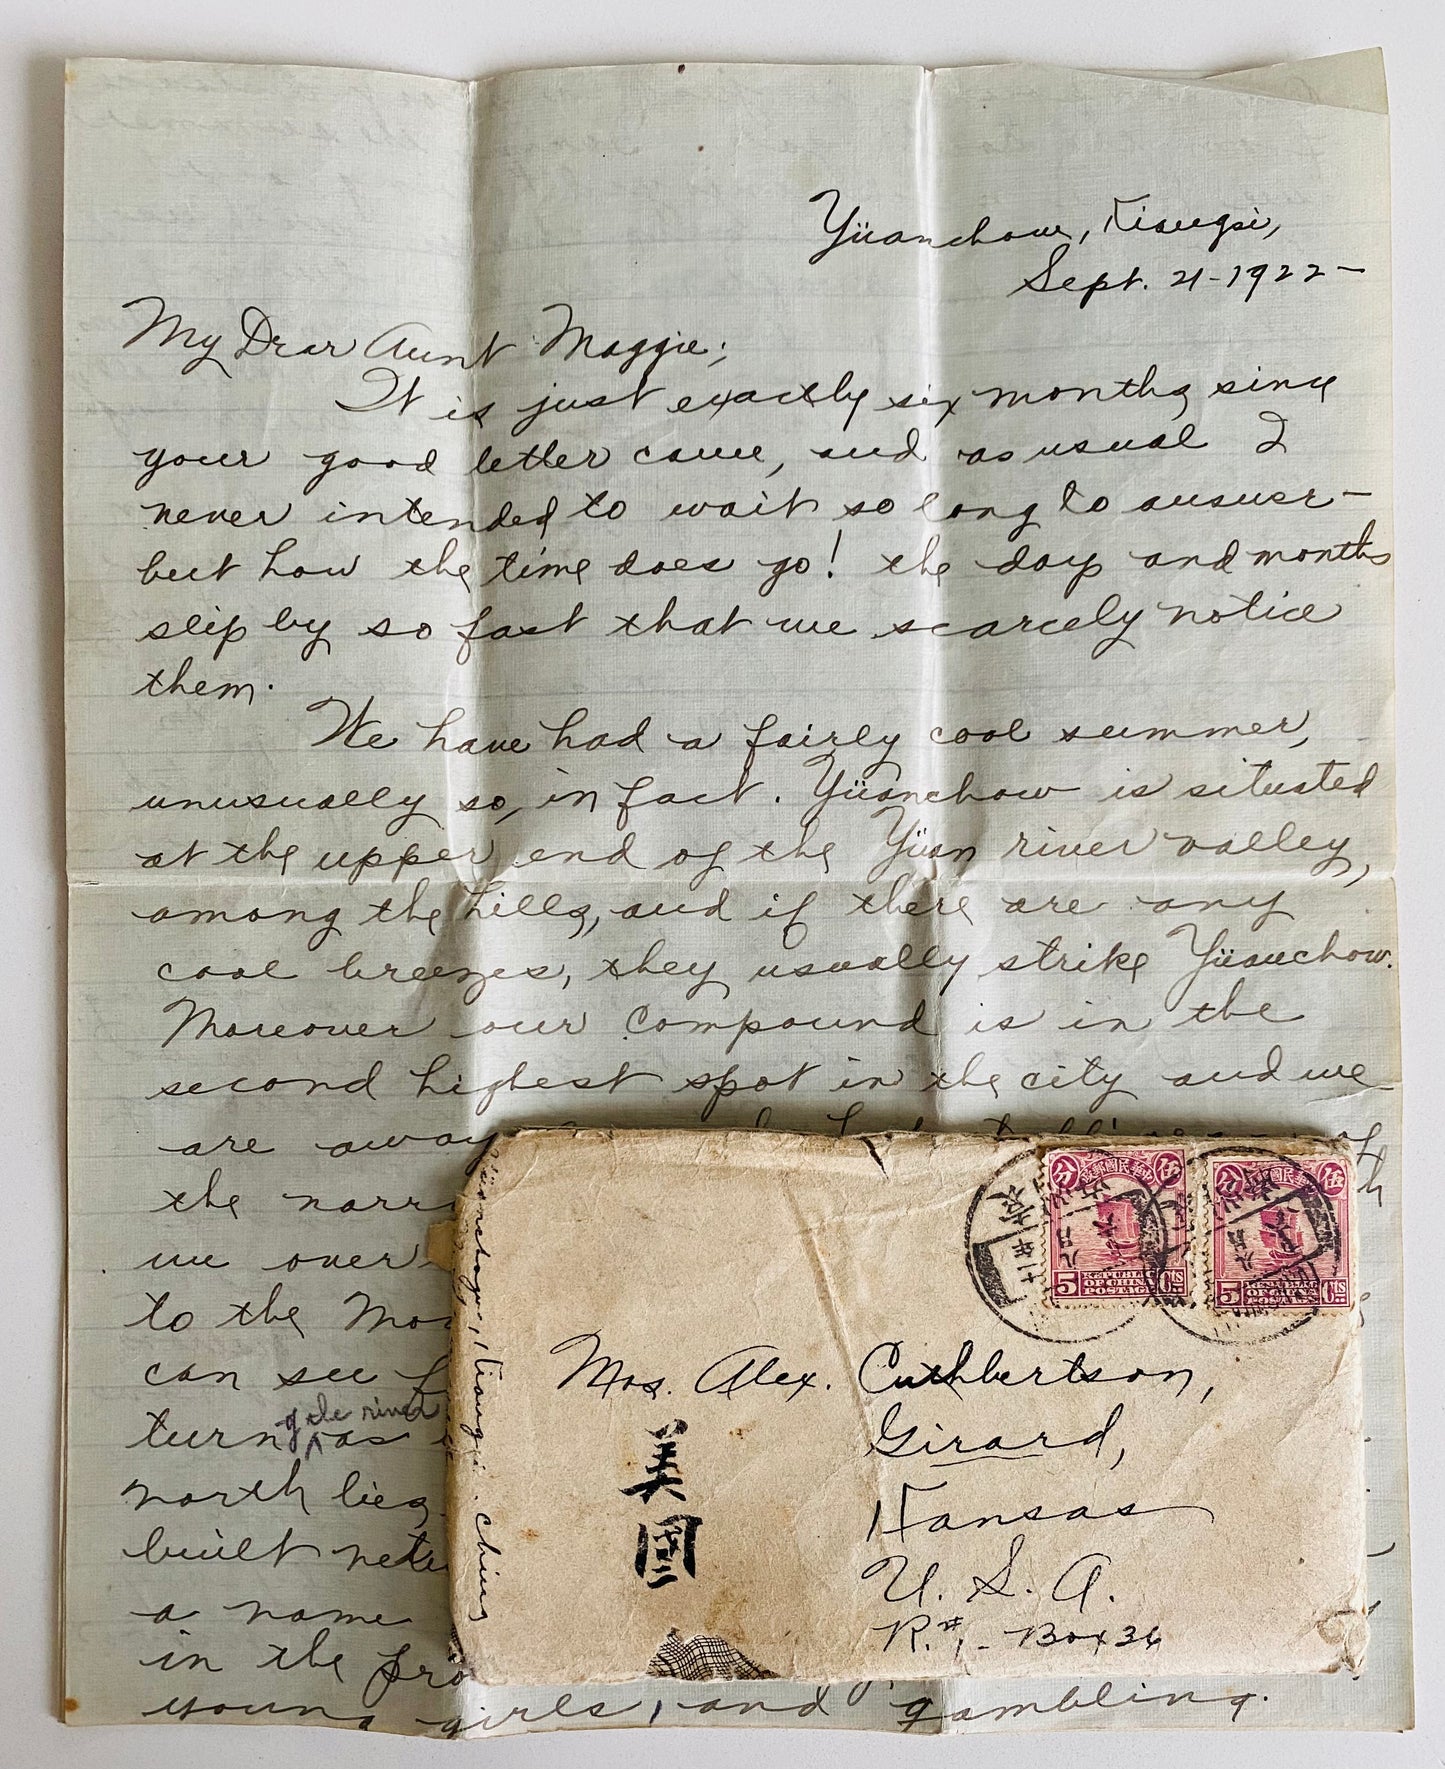 Yüanchow, Kiangsi,
Sept. 21-1922-
My Dear Aunt Maggie;
It is just exactly six months since
your good letter came, and as usual I
never intended to wait so long to answer-
but how the time does go! the days and months
slip by so fast that we scarcely notice
them.
We have had a fairly cool summer,
unusually so, in fact. Yüanchow is situated
at the upper end of the Yüan river valley,
among the hills, and if there are any
cool breezes, they usually strike Yüanchow.
Moreover our compound is in the
second highest spot in the city and we
are away
the
we over
to the
can see
of the river
turn as
north lies
built
a name
in the
young girls, and gambling.
Yüanchow, Kiangsi. China
中華民國郵政
分 伍
5 REPUBLIC OF CHINA POSTAGE CTS
中華民國郵政
分 伍
5 REPUBLIC OF CHINA POSTAGE CTS
袁
十一年
九月
Mrs. Alex. Cuthbertson,
Girard,
Kansas
U. S. A.
R.#1 - Box 36
美國